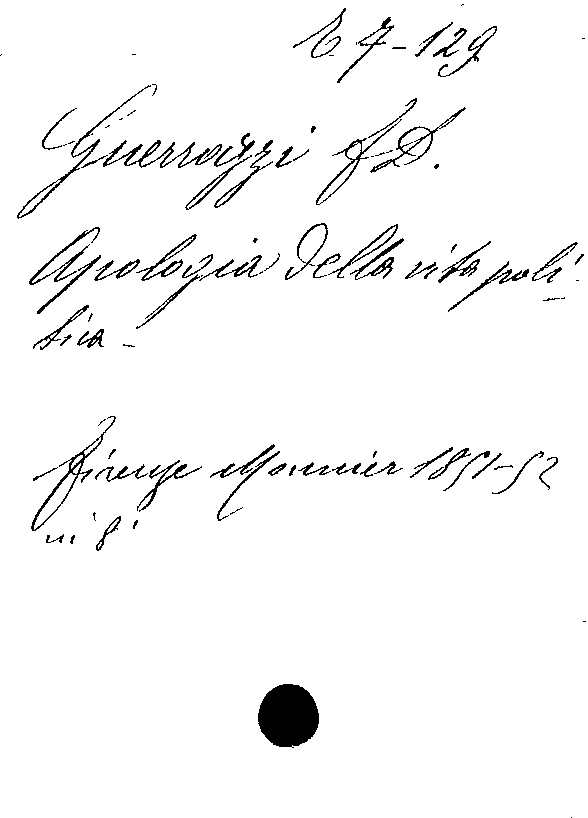 E 7-129
Guerrazzi F D.
Apologia della vita poli-
tica -
Firenze Monnier 1851-52
in 8º